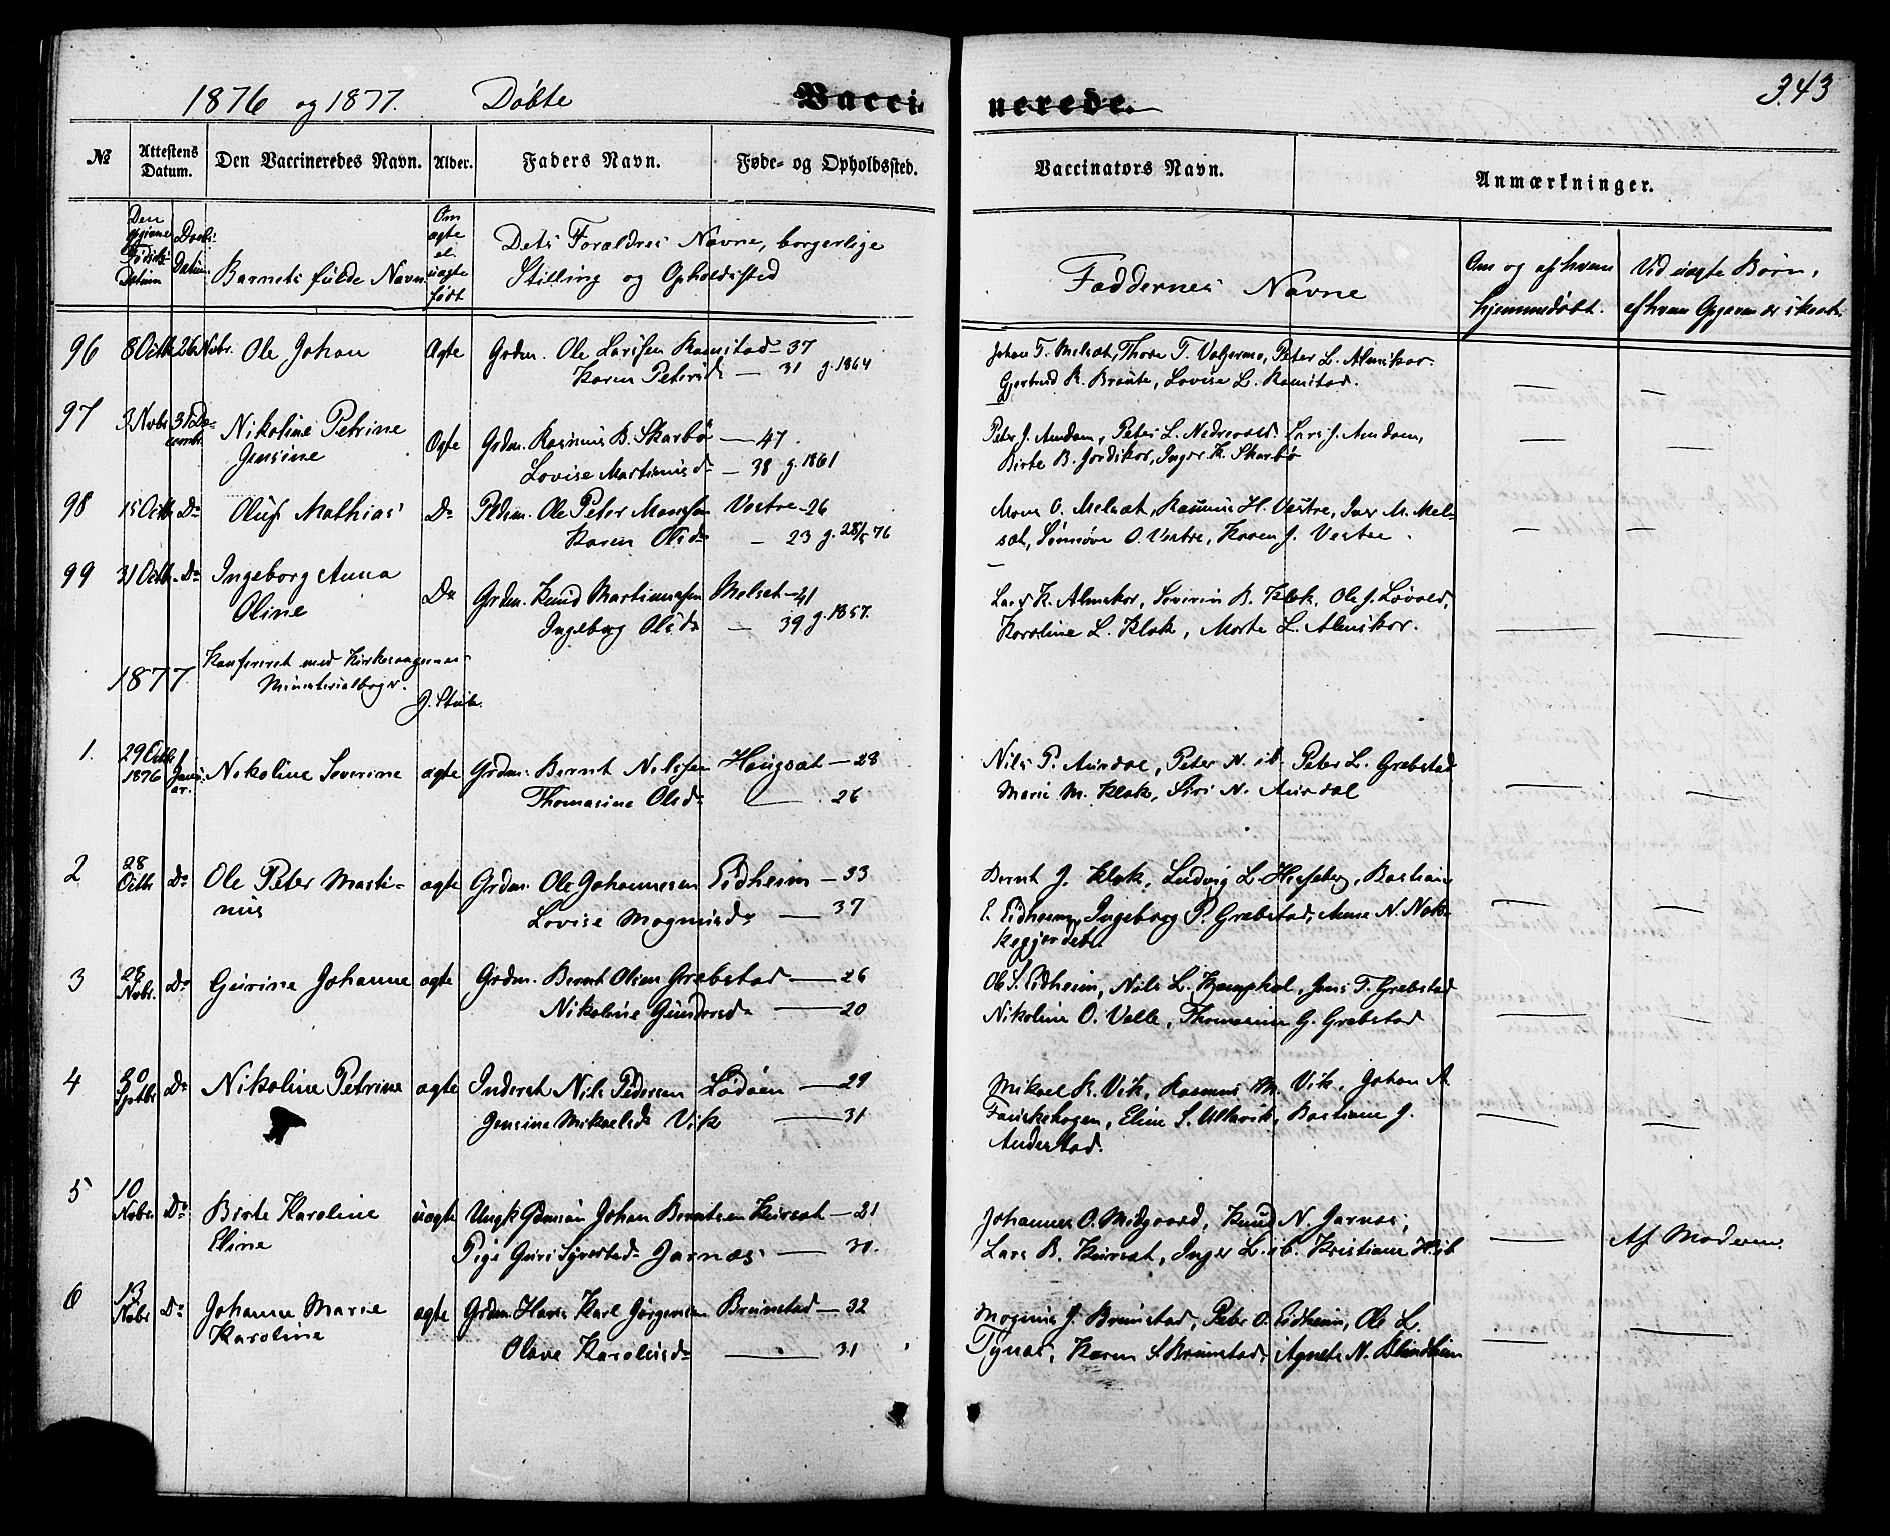 1876 og 1877. Døbte Vaccinerede. 343
№ Attestens Datum. Den Vaccineredes Navn. Alder. Faders Navn. Føde- og Opholdssted. Vaccinators Navn. Anmærkninger.
Den Døbs- Datum. Barnets fulde Navn. Om ægte el. uægte født Dets Forældres Navne, borgerlige
Stilling og Opholdssted
Faddernes Navne
Om og af hvem
hjemmedøbt.
Ved uægte Børn,
af hvem Opgaven er skeet.
96 8 Octb 26 Novbr. Ole Johan Ægte Grdm. Ole Larssen Ramstad - 37
Karen Petersd. — 31 g. 1864
Johan T. Melsæt, Thore T. Valgermo, Peter L. Almskor.
Gjertrud K. Braute, Lovise L. Ramstad. — —
97 3 Novbr 31 De-
cembr. Nikoline Petrine
Jensine Ægte Grdm. Rasmus B. Skarbø — 47.
Lovise Martinusd. — 38 g. 1861
Peter J. Amdam, Peter L. Nedrevold. Lars J. Amdam,
Birte B. Jordskor, Inger K. Skarbø — —
98 15 Octb. Do Oluf Mathias Do Pldsm. Ole Peter Monssen Vestre - 26
Karen Olsd. — 23 g. 28/5 76
Mons O. Melsæt, Rasmus H. Vestre, Iver M. Mel-
sæt, Sønnøve O. Vestre, Karen J. Vestre. — —
99 31 Octb. Do Ingeborg Anna
Oline Do Grdm. Knud Martinussen Melset - 41
Ingeborg Olsd. — 39 g. 1857.
Lars K. Almskor, Severin B. Klok, Ole J. Løvold,
Karoline L. Klok, Marte L. Almskor. — —
1877 Konfereret med Kirkesangernes
Ministerialbog.
J. Stub.
1. 29 Octb
1876 Janu-
ar. Nikoline Severine ægte Grdm. Bernt Nilssen Haugsæt — 28
Thomasine Olsd. — 26
Nils P. Aursdal, Peter N. ib. Peter L. Grebstad
Marie M. Klok, Siri N. Aursdal — —
2. 28
Octb Do Ole Peter Marti-
nus ægte Grdm. Ole Johannesen Eidheim — 33
Lovise Magnusd. — 37
Bernt J. Klok, Ludvig L. Bastian
E. Eidheim, Ingeborg P. Grebstad, Anne N. Nak-
kegjerdet — —
3 28
Novbr. Do Gurine Johanne ægte Grdm. Bernt Olsen Grebstad — 26
Nikoline Gundersd. — 20
Ole S. Eidheim, Nils L. Jens T. Grebstad
Nikoline O. Velle, Thomasine G. Grebstad — —
4 20
Septbr Do Nikoline Petrine ægte Inderst Nils Pedersen Lødøen — 29
Jensine Mikaelsd. Vik — 31
Mikael K. Vik, Rasmus M. Vik, Johan A.
Fauskekogen, Eline S. Ullavik, Bastiane J.
Anderstad. — —
5 10
Novbr Do Birte Karoline
Eline uægte Ungk. Johan Berntsen Kursæt — 21
Pige Guri Syvertsd. Jarnæs — 31.
Johannes O. Midgaard, Knud N. Jarnæs,
Lars B. Kursæt, Inger L. ib. Kristiane H. ib — Af Moderen.
6 13
Novbr Do Johanne Marie
Karoline ægte Grdm. Hans Karl Jørgensen Brunstad — 32
Olave Karolusd. — 31
Magnus J. Brunstad, Peter O. Eidheim, Ole L.
Tynæs, Karen S. Brunstad, Agnete N. Blindheim — —